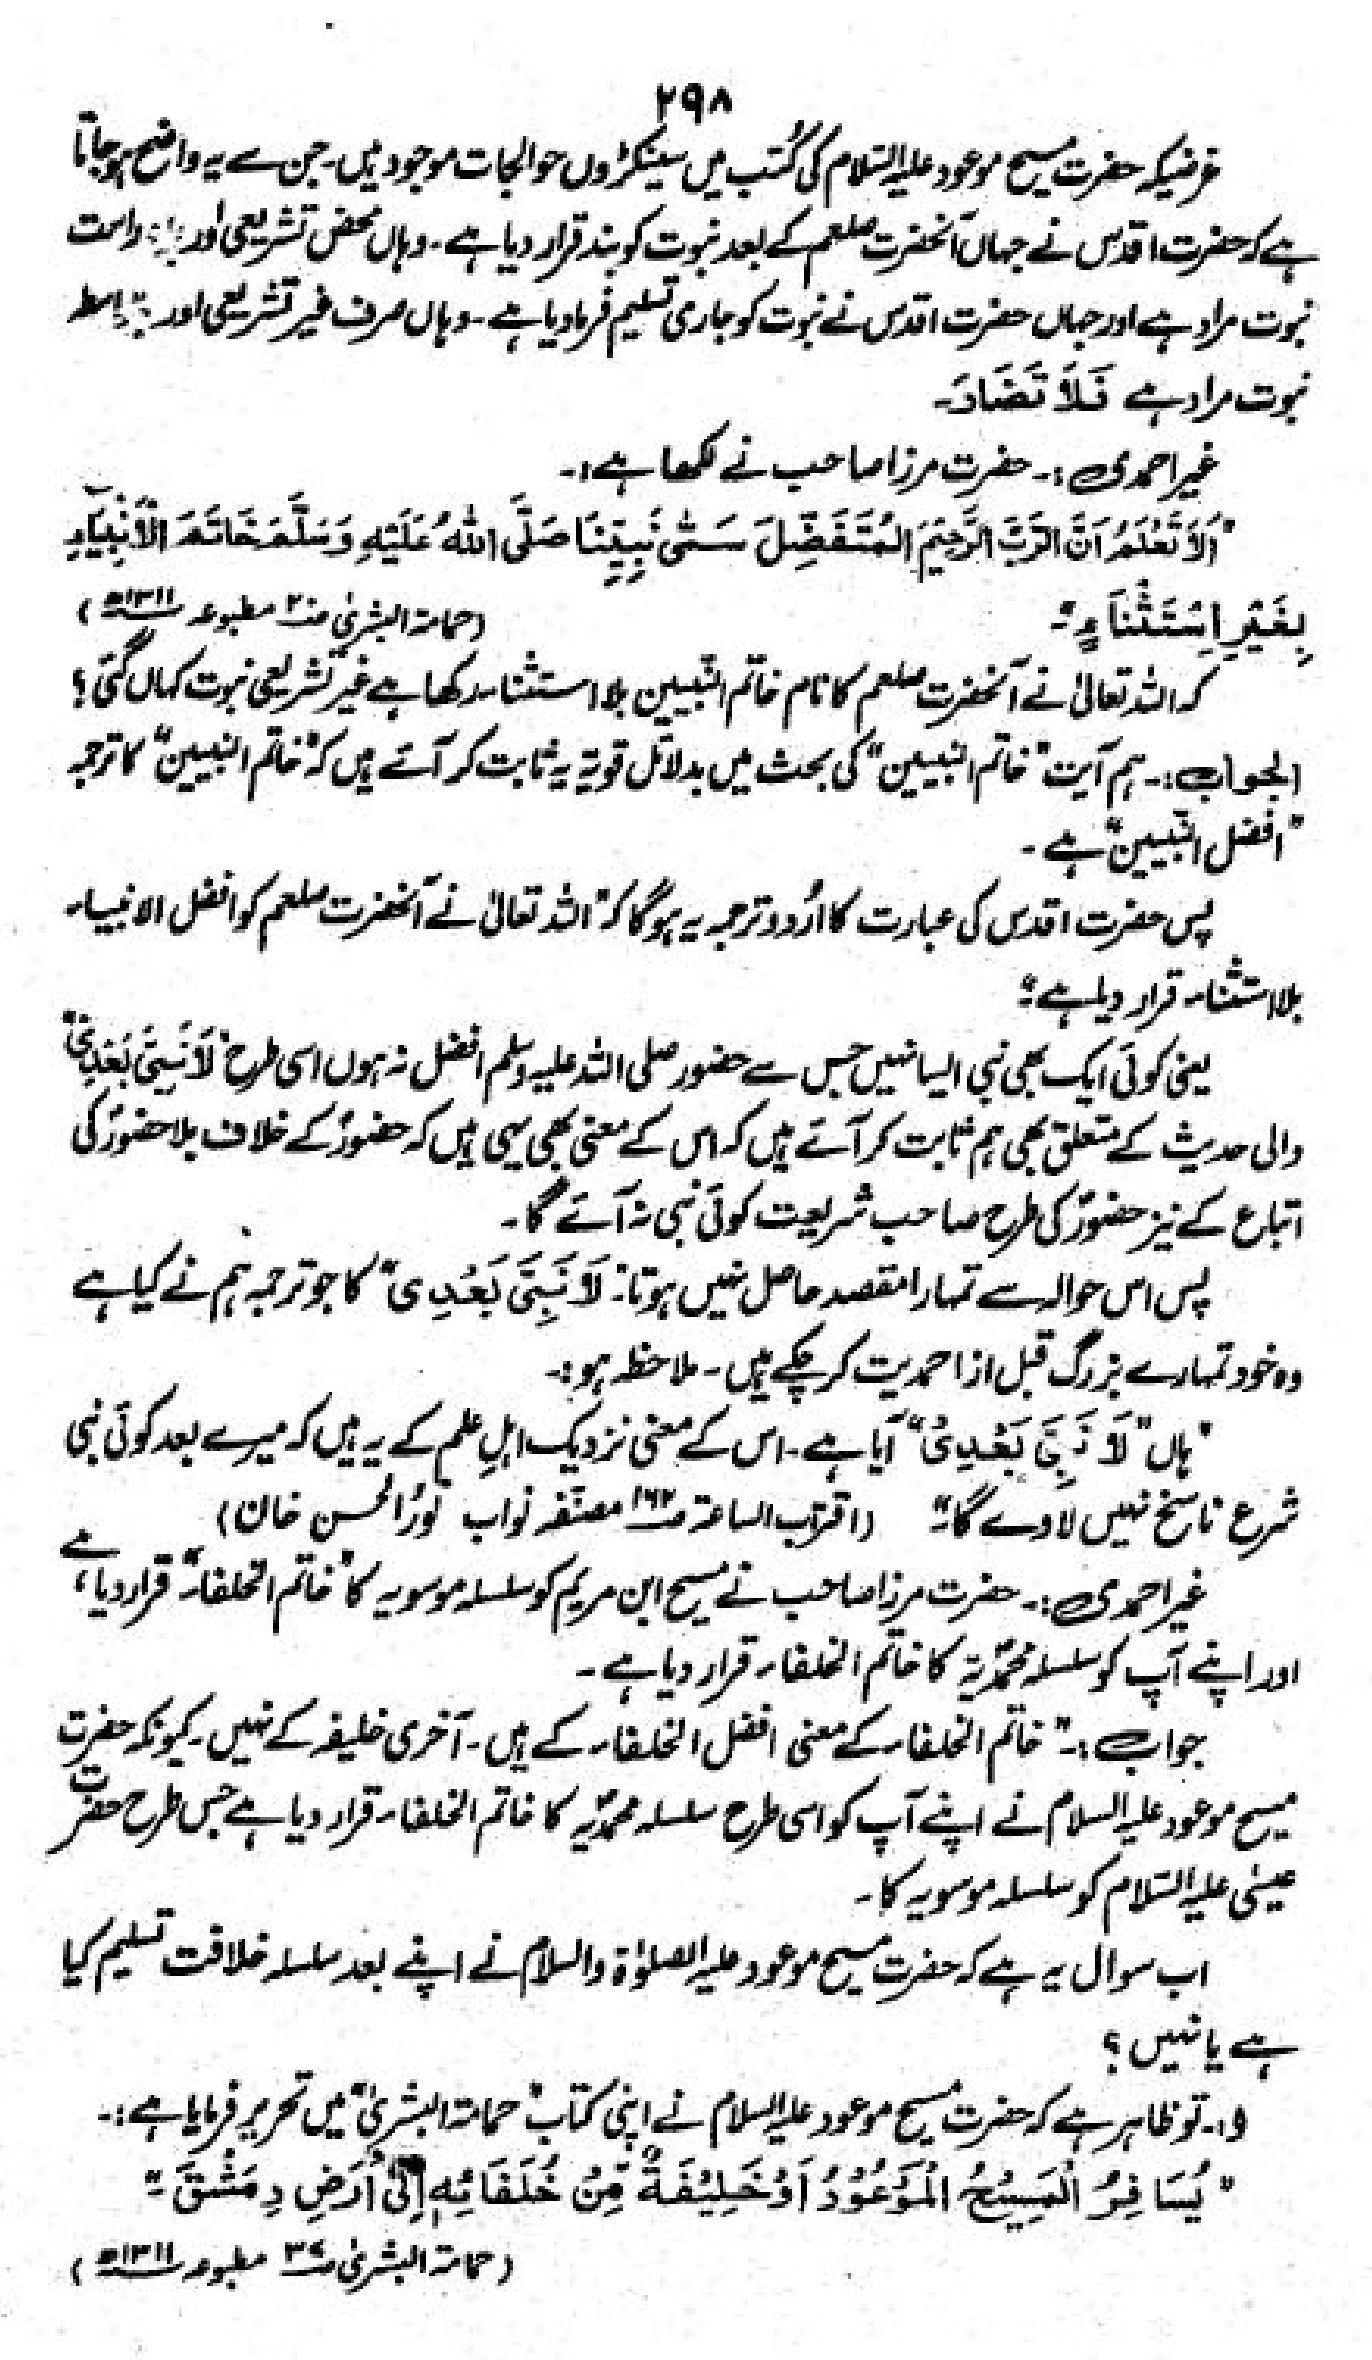 ۲۹۸
غرضیکہ حضرت مسیح موعود علیہ السلام کی کُتب میں سینکڑوں حوالجات موجود ہیں۔ جن سے یہ واضح ہو جاتا
ہے کہ حضرت اقدس نے جہاں آنحضرت صلعم کے بعد نبوت کو بند قرار دیا ہے۔ وہاں محض تشریعی اور براہ راست
نبوت مراد ہے اور جہاں حضرت اقدس نے نبوت کو جاری تسلیم فرما دیا ہے۔ وہاں صرف غیر تشریعی اور
نبوت مراد ہے فَلَا تَضَادَ۔
غیر احمدی:۔ حضرت مرزا صاحب نے لکھا ہے:۔
"اَلَا تَعْلَمُ اَنَّ الرَّبَّ الرَّحِيْمَ الْمُتَفَضِّلَ سَمّٰى نَبِيَّنَا صَلَّى اللّٰهُ عَلَيْهِ وَسَلَّمَ خَاتَمَ الْاَنْبِيَآءِ
بِغَيْرِ اِسْتِثْنَاءٍ"۔ (حمامۃ البشریٰ صـ۲۰ مطبوعہ ۱۳۱۱ھ)
کہ اللہ تعالیٰ نے آنحضرت صلعم کا نام خاتم النّبیین بلا استثناء رکھا ہے غیر تشریعی نبوت کہاں گئی؟
الجواب:۔ ہم آیت "خاتم النبیین" کی بحث میں بدلائل قویّہ یہ ثابت کر آئے ہیں کہ "خاتم النبیین" کا ترجمہ
"افضل النّبیین" ہے۔
پس حضرت اقدس کی عبارت کا اُردو ترجمہ یہ ہو گا کہ "اللہ تعالیٰ نے آنحضرت صلعم کو افضل الانبیاء
بلا استثناء قرار دیا ہے"۔
یعنی کوئی ایک بھی نبی ایسا نہیں جس سے حضور صلی اللہ علیہ وسلم افضل نہ ہوں اسی طرح "لَا نَبِيَّ بَعْدِيْ"
والی حدیث کے متعلق بھی ہم ثابت کر آئے ہیں کہ اس کے معنی بھی یہی ہیں کہ حضورؐ کے خلاف بلا حضورؐ کی
اتباع کے نیز حضورؐ کی طرح صاحب شریعت کوئی نبی نہ آئے گا۔
پس اس حوالہ سے تمہارا مقصد حاصل نہیں ہوتا۔ "لَا نَبِيَّ بَعْدِی" کا جو ترجمہ ہم نے کیا ہے
وہ خود تمہارے بزرگ قبل از احمدیت کر چکے ہیں۔ ملاحظہ ہو:۔
"ہاں "لَا نَبِيَّ بَعْدِیْ" آیا ہے۔ اس کے معنی نزدیک اہلِ علم کے یہ ہیں کہ میرے بعد کوئی نبی
شرع ناسخ نہیں لاوے گا"۔ (اقتراب الساعۃ صـ۱۶۲ مصنفہ نواب نورُالحسن خان)
غیر احمدی:۔ حضرت مرزا صاحب نے مسیح ابن مریم کو سلسلہ موسویہ کا "خاتم الخلفاء" قرار دیا ہے،
اور اپنے آپ کو سلسلہ محمّدیّہ کا خاتم الخلفاء قرار دیا ہے۔
جواب:۔ "خاتم الخلفاء کے معنی افضل الخلفاء کے ہیں۔ آخری خلیفہ کے نہیں۔ کیونکہ حضرت
مسیح موعود علیہ السلام نے اپنے آپ کو اسی طرح سلسلہ محمدیّہ کا خاتم الخلفاء قرار دیا ہے جس طرح حضرت
عیسٰی علیہ السّلام کو سلسلہ موسویہ کا۔
اب سوال یہ ہے کہ حضرت مسیح موعود علیہ الصلوٰۃ والسلام نے اپنے بعد سلسلہ خلافت تسلیم کیا
ہے یا نہیں؟
۱۹۔ تو ظاہر ہے کہ حضرت مسیح موعود علیہ السلام نے اپنی کتاب "حمامۃ البشریٰ" میں تحریر فرمایا ہے:۔
"يُسَافِرُ الْمَسِيْحُ الْمَوْعُوْدُ اَوْ خَلِيْفَةٌ مِّنْ خُلَفَائِهٖ اِلٰى اَرْضِ دِمَشْقَ"۔
(حمامۃ البشریٰ صـ۳۷ مطبوعہ ۱۳۱۱ھ)